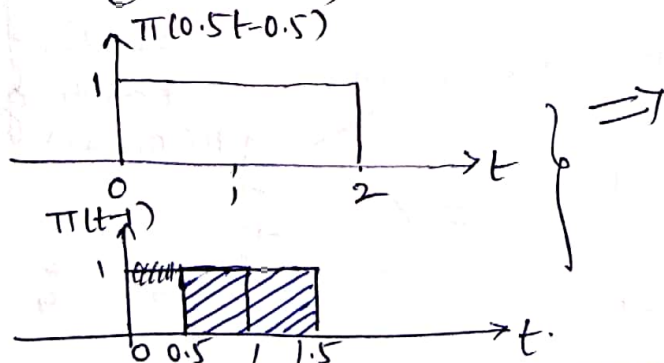 Π(0.5t-0.5)
1
t
0 1 2
⇒
Π(t-1)
1
t.
0 0.5 1 1.5